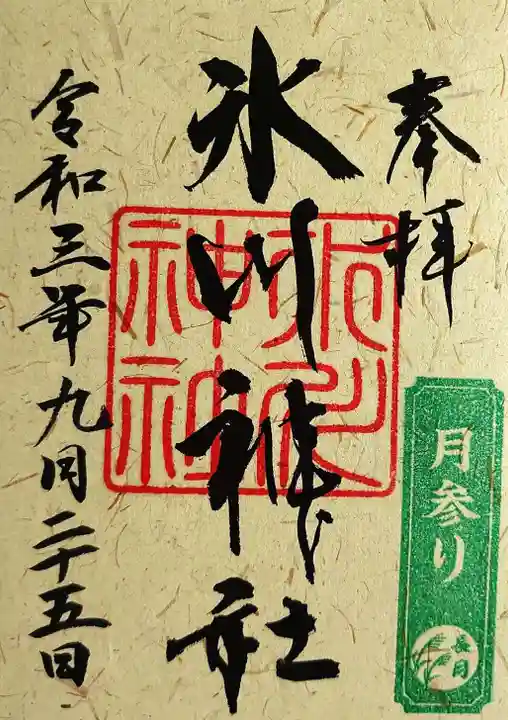 奉拝
月参り
長月
氷川神社
令和三年九月二十五日